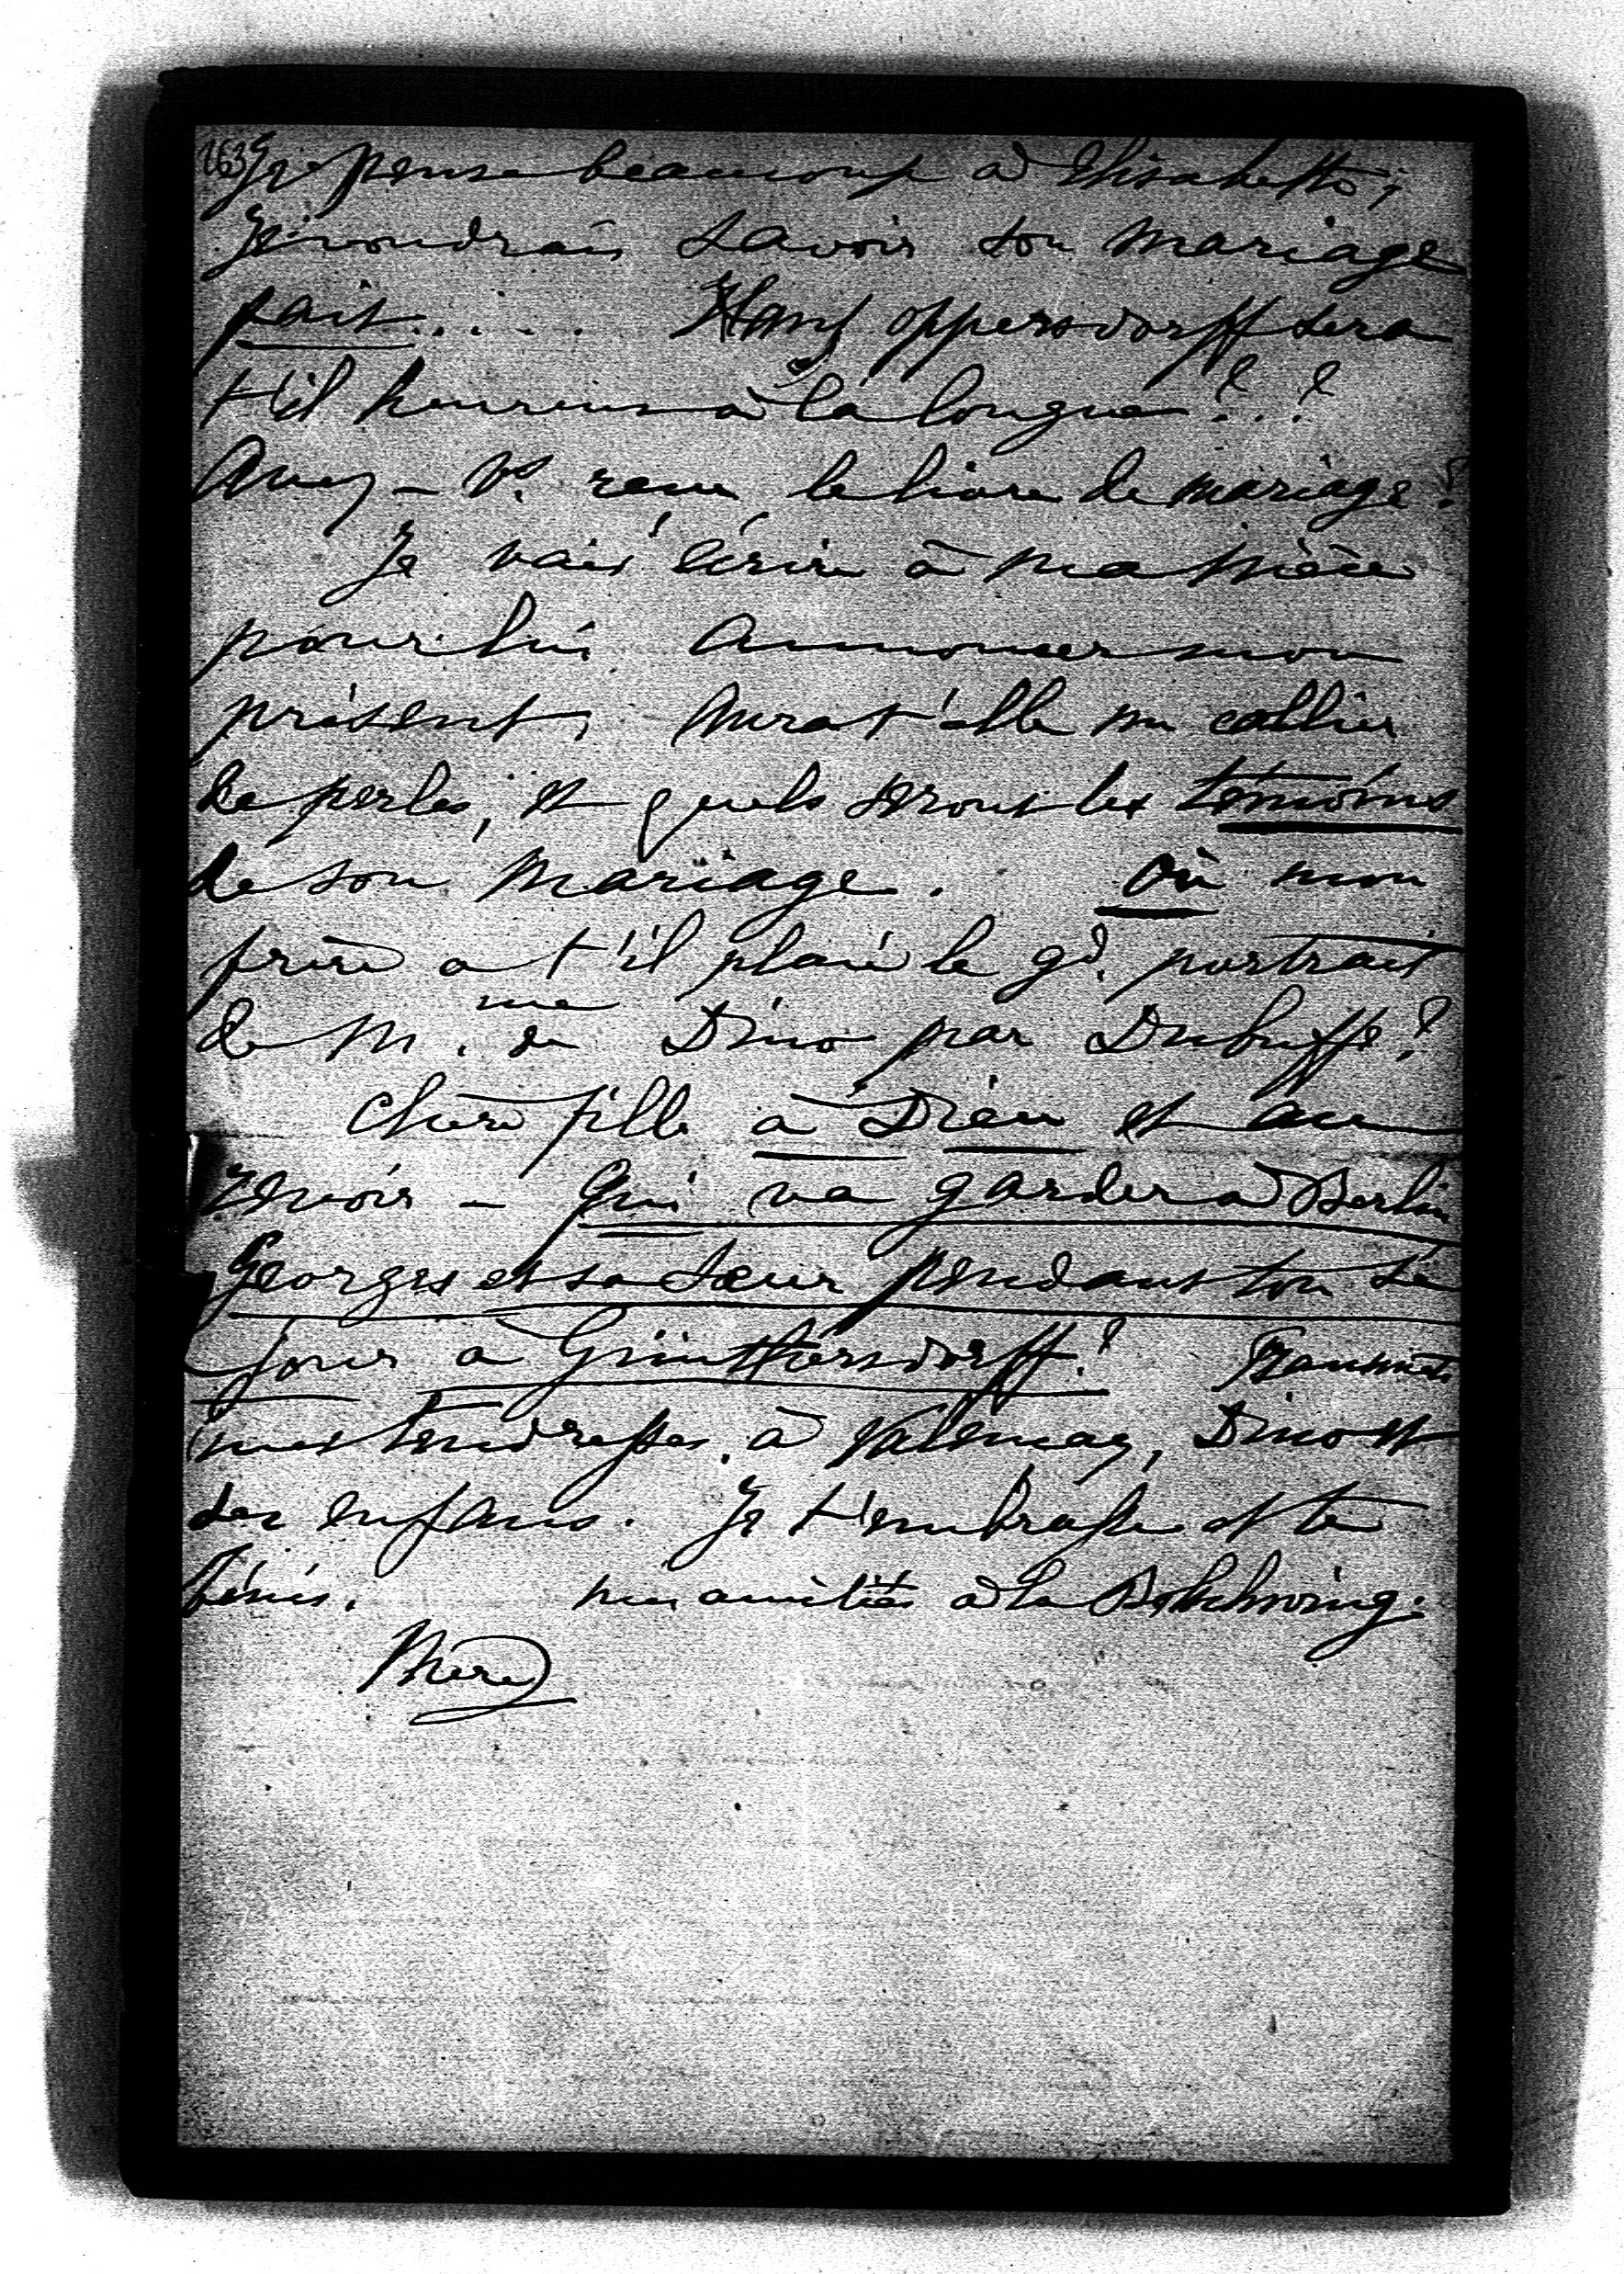 263
Je pense beaucoup à Elisabeth;
Je voudrais savoir son mariage
fait..... Hans Oppersdorff sera
t'il heureux à la longue?..?
Avez-vs. recu le livre de mariage?
Je vais écrire à ma Nièce
pour lui annoncer mon
présent, Aura t'elle un collier
de perles, et quels seront les témoins
de son mariage. Où mon
frère a t'il placé le gd. portrait
de Mme de Dino par Dubuffe?
Chère fille à Dieu et au
revoir - Qui va garder à Berlin
Georges et sa sœur pendant ton sé
jour à Günthersdorff? Transmets
mes tendresses à Valençay, Dino et
des enfans. Je t'embrasse et te
bénis. mes amitiés à la
Mère